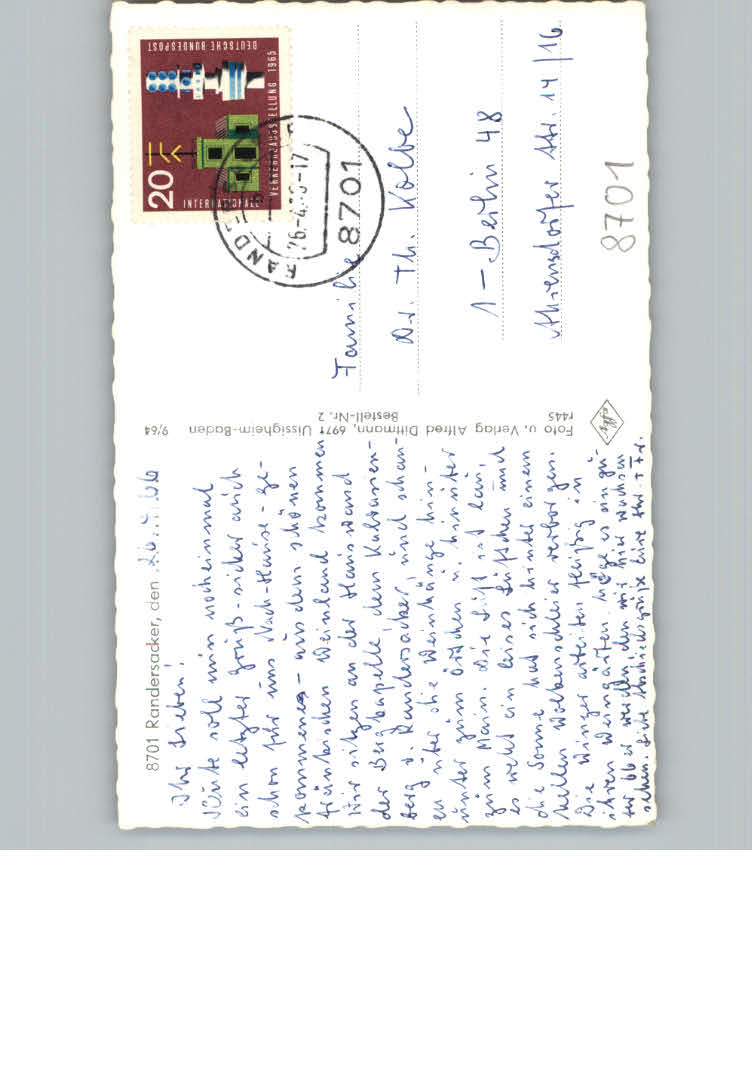 8701 Randersacker, den 26.4.66
Ihr Lieben!
Heute soll nun nocheinmal
ein letzter Gruß - sicher auch
schon für uns Nach-Hause-ge-
kommene - aus dem schönen
fränkischen Weinland kommen
Wir sitzen an der Hauswand
der Bergkapelle dem Kalvarien-
berg v. Randersacker, und schau-
en über die Weinhänge hin-
unter zum Örtchen u. hinüber
zum Main. Die Luft ist lau,
es weht ein leises Lüftchen und
die Sonne hat sich hinter einem
hellen Wolkenschleier verborgen.
Die Winzer arbeiten fleißig in
ihren Weingärten. Möge es ein gu-
ter 66er werden, den wir hier wachsen
sehen. Liebe Abschiedsgrüße Eure
Foto u. Verlag Alfred Dittmann, 6971 Uissigheim-Baden 9/64
r445 Bestell-Nr. 2
Agfa
DEUTSCHE BUNDESPOST
INTERNATIONALE VERKEHRSAUSSTELLUNG 1965
20
26.-4.66-17
8701
Familie
Dr. Th. Kolbe
1 - Berlin 48
Ahrensdorfer Str. 14/16
8701